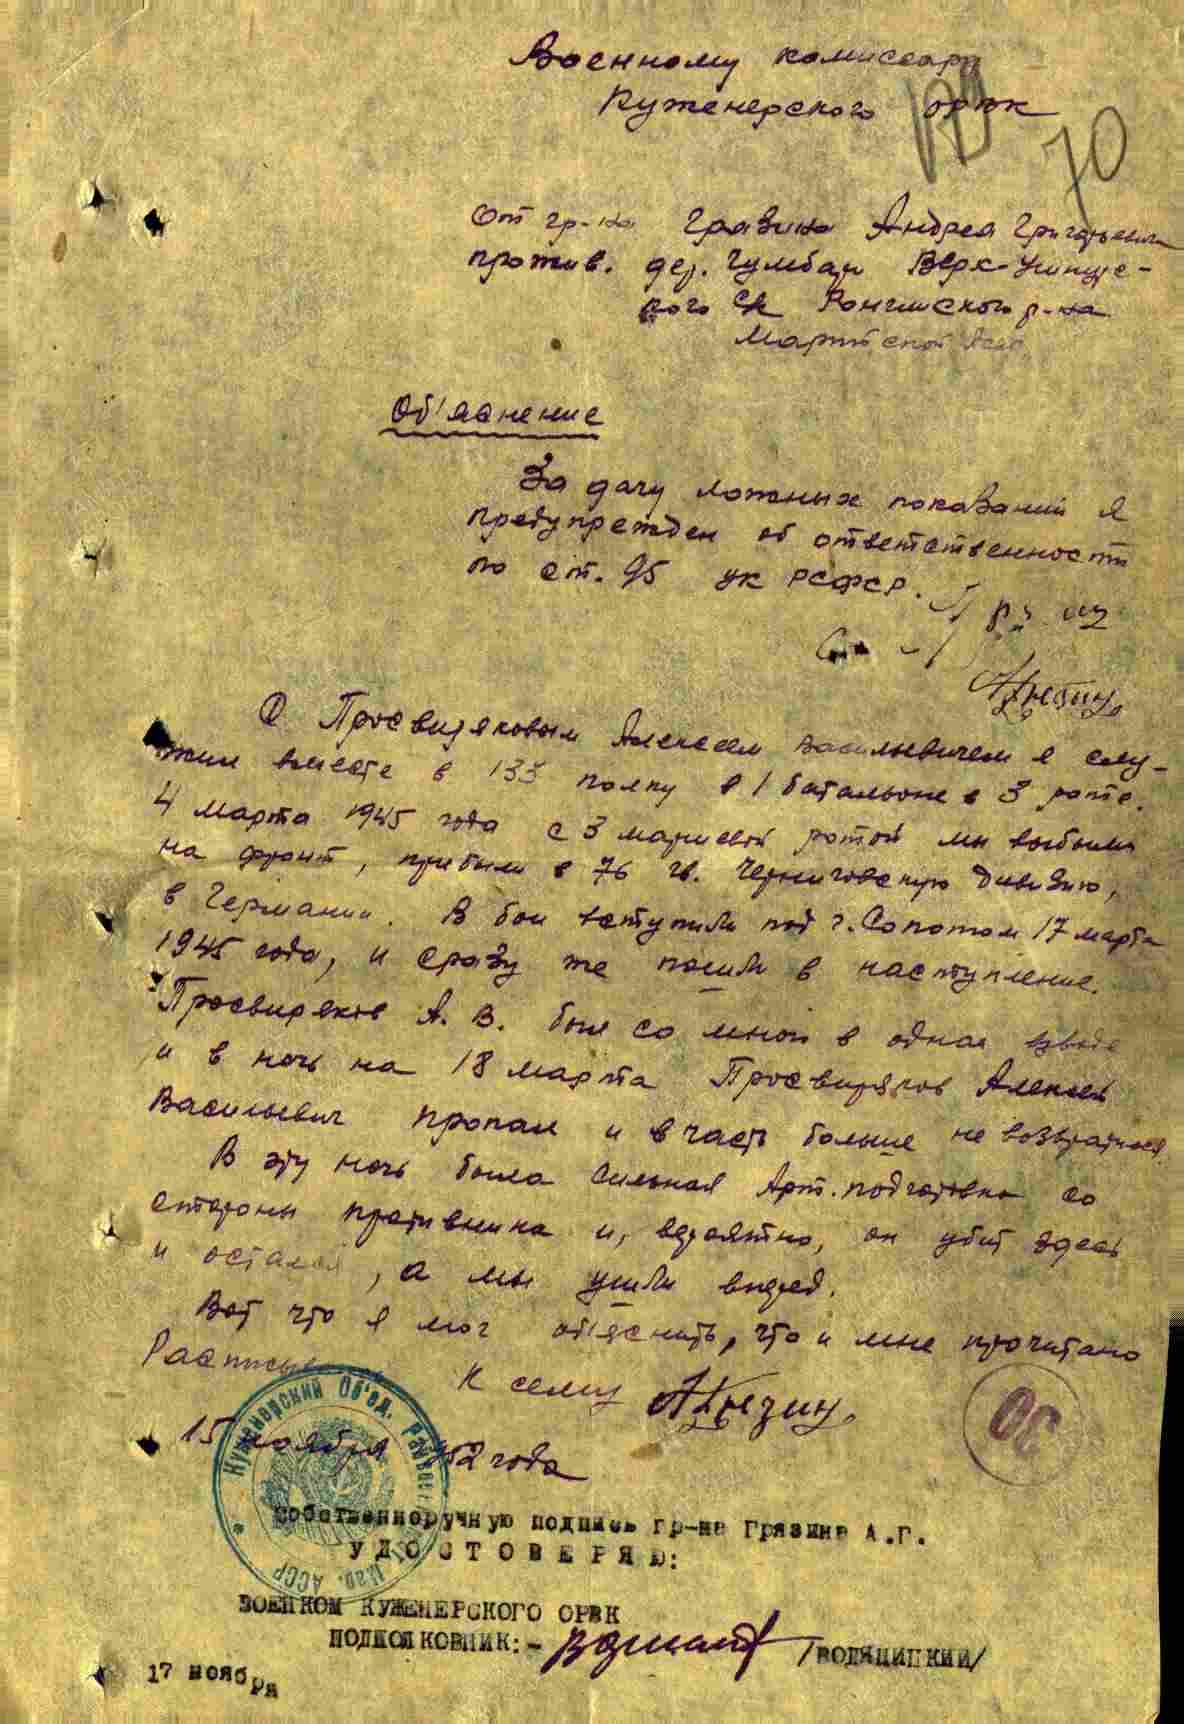 Военному комиссару
Куженерского орвк
129
70
От гр-на Грязина Андрея Григорьевича
прожив. дер. Чумбари Верх-Ушнурс-
кого с/с Ронгинского р-на
Марийской АССР
Об'яснение
За дачу ложных показаний я
предупрежден об ответственности
по ст. 95 УК РСФСР.
С Просвиряковым Алексеем Васильевичем я слу-
жил вместе в 133 полку в 1 батальоне в 3 роте.
4 марта 1945 года с 3 маршевой ротой мы выбыли
на фронт, прибыли в 76 гв. Черниговскую дивизию,
в Германии. В бои вступили под г. Сопотом 17 марта
1945 года, и сразу же пошли в наступление.
Просвиряков А. В. был со мной в одном взводе
и в ночь на 18 марта Просвиряков Алексей
Васильевич пропал и в часть больше не возвратился.
В эту ночь была сильная Арт. подготовка со
стороны противника и, вероятно, он убит здесь
и остался, а мы ушли вперед.
Вот что я мог об'яснить, что и мне прочитано
Расписываюсь к сему А Грязин
15 ноября 1952 года
ОС
Куженерский Об'ед. Райвоенкомат Мар. АССР
Собственноручную подпись гр-на Грязина А.Г.
УДОСТОВЕРЯЮ:
ВОЕНКОМ КУЖЕНЕРСКОГО ОРВК
ПОДПОЛКОВНИК:- /ВОДЯЦИЦКИЙ/
17 ноября